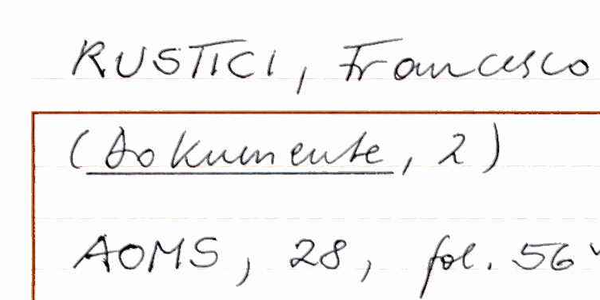 RUSTICI, Francesco
(Dokumente, 2)
AOMS, 28, fol. 56v